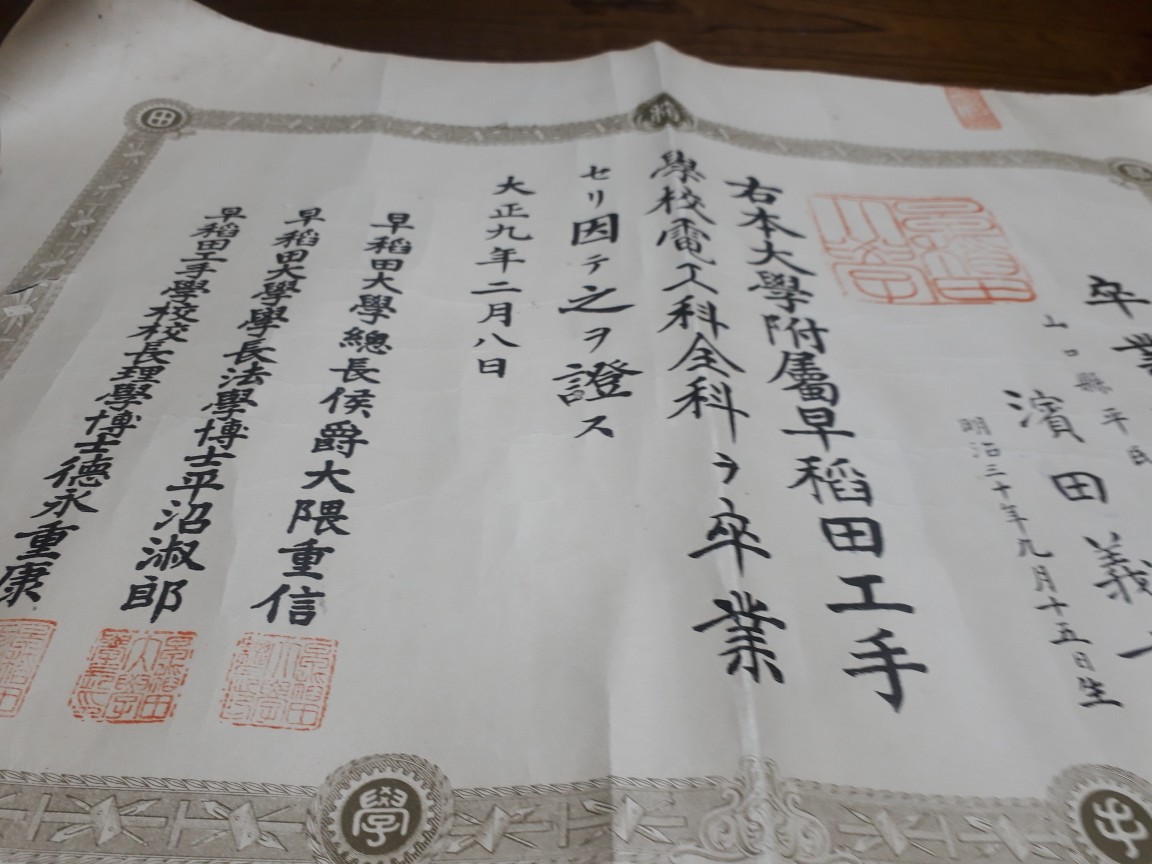 卒業
山口縣平民
濱田義
明治三十年九月十五日生
右本大學附屬早稻田工手
學校電工科全科ヲ卒業
セリ因テ之ヲ證ス
大正九年二月八日
早稻田大學總長侯爵大隈重信
早稻田大學學長法學博士平沼淑郎
早稻田工手學校校長理學博士德永重康
田
學